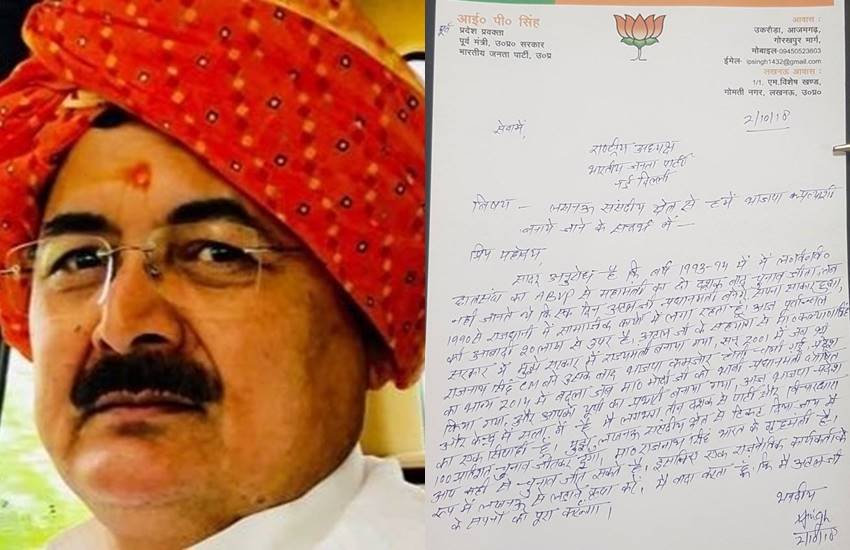 आई० पी० सिंह
पूर्व प्रदेश प्रवक्ता
पूर्व मंत्री, उ०प्र० सरकार
भारतीय जनता पार्टी, उ०प्र
आवास :
उकरौड़ा, आजमगढ़,
गोरखपुर मार्ग,
मोबाइल-09450523803
ईमेल- ipsingh1432@gmail.com
लखनऊ आवास :
1/1, एम.विशेष खण्ड,
गोमती नगर, लखनऊ, उ०प्र०
2/10/18
सेवामें,
राष्ट्रीय अध्यक्ष
भारतीय जनता पार्टी
नई दिल्ली
विषय - लखनऊ संसदीय क्षेत्र से हमें भाजपा प्रत्याशी
बनाये जाने के सम्बन्ध में -
प्रिय महोदय,
सादर अनुरोध है कि वर्ष 1993-94 में मैं ल०वि०वि०
छात्रसंघ का ABVP से महामंत्री का दो दशक बाद चुनाव जीता, तब
नहीं जानते थे कि एक दिन अटल जी प्रधानमंत्री बनेंगे
1990 से राजधानी में सामाजिक कार्यों में लगा रहता हूँ आज पूर्वांचल
की आबादी 20 लाख से उपर है। अटल जी के मा० कल्याण सिंह
सरकार में मुझे सरकार में राज्यमंत्री बनाया गया, सन् 2001 में जब श्री
राजनाथ सिंह CM बने उसके बाद भाजपा कमजोर होती चली गई
का भाग्य 2014 में बदला जब मा० मोदी जी को भावी प्रधानमंत्री घोषित
किया गया, और आपको यूपी का प्रभारी बनाया गया। आज भाजपा प्रदेश
और केन्द्र में सत्ता में है। मैं लगभग तीन दशक से पार्टी और विचारधारा
का एक सिपाही हूँ। मुझे लखनऊ संसदीय क्षेत्र से टिकट दिया जाय मैं
100 प्रतिशत चुनाव जीतकर दूंगा। मा० राजनाथ सिंह भारत के गृहमंत्री हैं।
आप कहीं से चुनाव जीत सकते हैं। इसलिए एक राजनैतिक कार्यकर्ता के
रूप में लखनऊ से लड़ाने कृपा करें, मैं वादा करता हूँ कि मैं अटल जी
के सपनों को पूरा करूंगा।
भवदीय
2/10/18